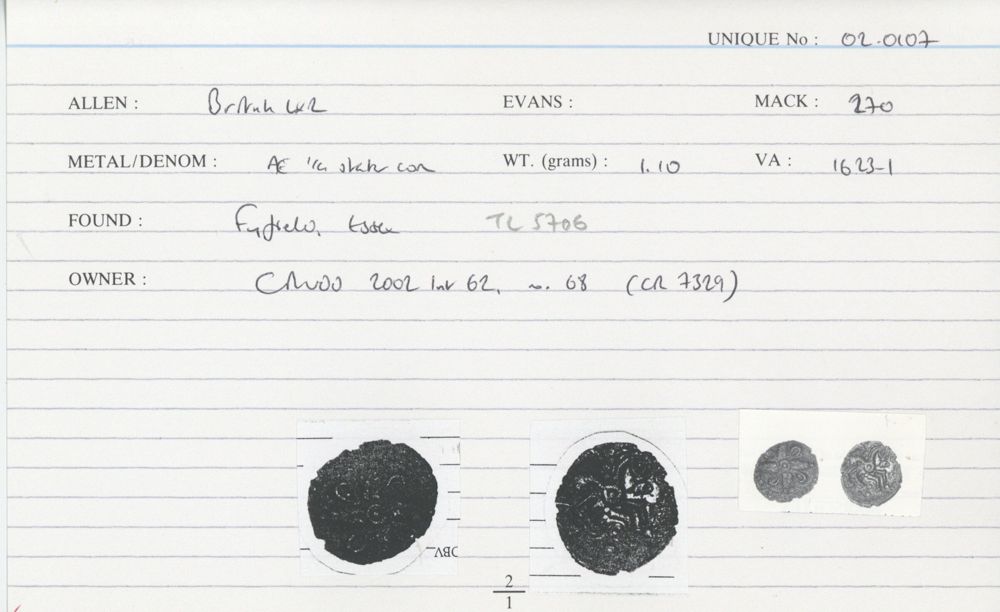 UNIQUE No : 02.0107
ALLEN : British LX2 EVANS : MACK : 270
METAL/DENOM : AE 1/4 stater core WT. (grams) : 1.10 VA : 1623-1
FOUND : Fyfield, Essex TL 5706
OWNER : 2002 list 62, no. 68 (CR 7329)
OBV
2
1